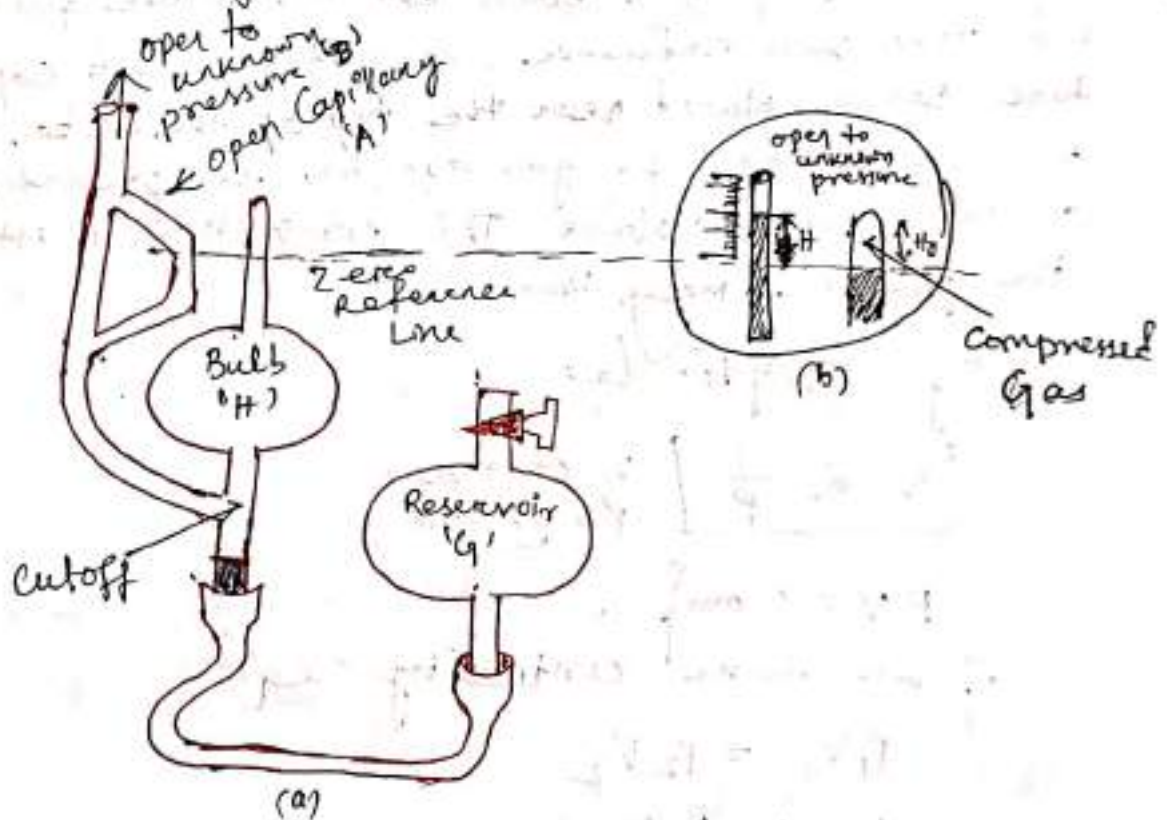 open to
unknown (B)
pressure
open Capillary
'A'
Zero
Reference
Line
Bulb
'H'
Reservoir
'G'
Cutoff
(a)
open to
unknown
pressure
H
H₀
(b)
Compressed
Gas